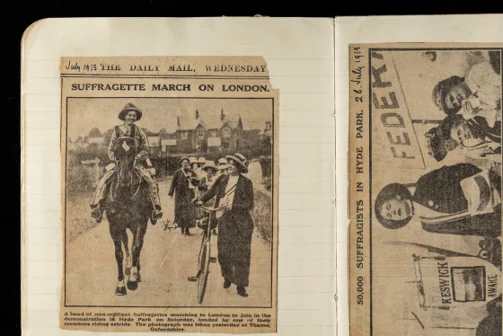 July 1913 THE DAILY MAIL, WEDNESDAY
SUFFRAGETTE MARCH ON LONDON.
A band of non-militant Suffragettes marching to London to join in the
demonstration in Hyde Park on Saturday, headed by one of their
members riding astride. The photograph was taken yesterday at Thame,
Oxfordshire.
50,000 SUFFRAGISTS IN HYDE PARK. 26 July 1913
FEDER
KESWICK